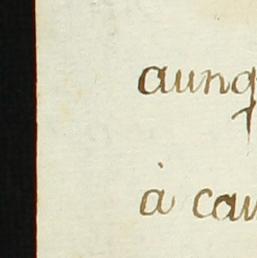 aunq
à cau